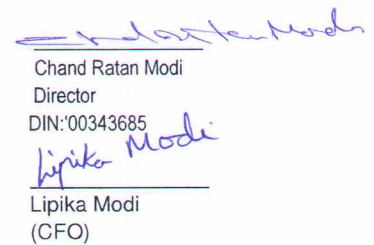 Chand Ratan Modi
Chand Ratan Modi
Director
DIN:'00343685
Lipika Modi
Lipika Modi
(CFO)